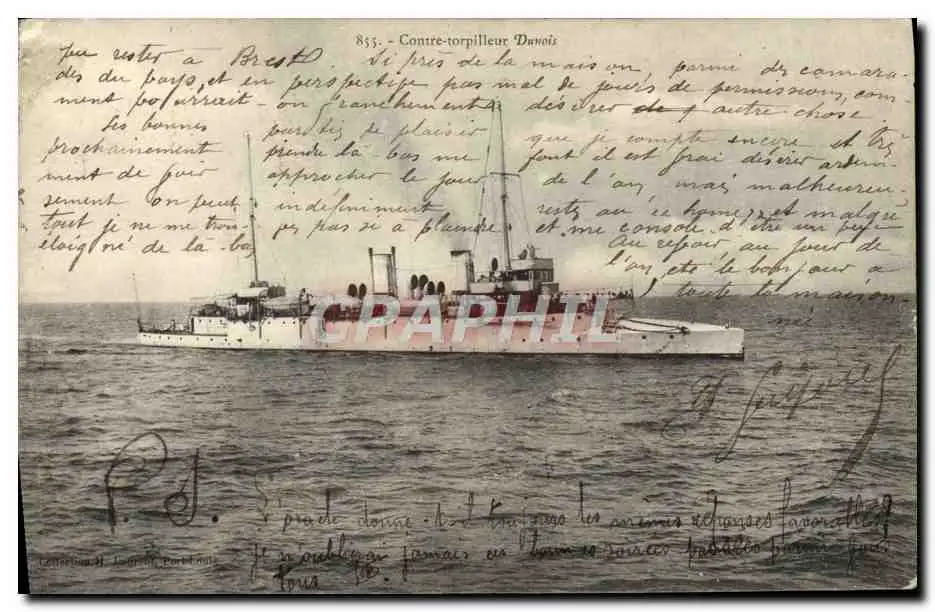 855. - Contre-torpilleur Dunois
pu rester à Brest. Si près de la maison, parmi des camara-
des du pays, et en perspective pas mal de jours de permissions, com-
ment pourrait-on franchement désirer autre chose.
Ses bonnes parties de plaisir que je compte encore et très
prochainement prendre là-bas me font il est vrai désirer ardem-
ment de voir approcher le jour de l'an, mais malheureu-
sement on peut indéfiniment rester au "home", et malgré
tout je ne me trouve pas si à plaindre et me console d'être un peu
éloigné de là-bas
Au revoir au jour de
l'an, et le bonjour à
toute la maison-
née
P. S.
L'oracle donne-t-il toujours les mêmes réponses favorables?
je n'oublierai jamais ces bonnes soirées passées parmi vous
tous
Collection H. Laurent, Port-Louis
CPAPHIL